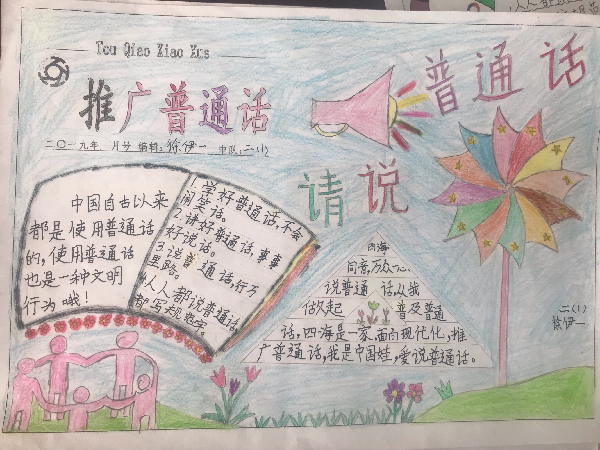 Tou Qiao Xiao Xue
推广普通话
二〇一九年 月号 编辑:徐伊一 中队:二(1)
普通话
请说
中国自古以来
都是使用普通话
的,使用普通话
也是一种文明
行为哦!
1.学好普通话,不会
闹笑话。
2.讲好普通话,事事
好说话。
3.说普通话,行万
里路。
4人人都说普通话
都写
内海
同喜万众一心
说普通话,从我
做起 普及普通
话,四海是一家,面向现代化,推
广普通话,我是中国娃,爱说普通话。
二(1)
徐伊一